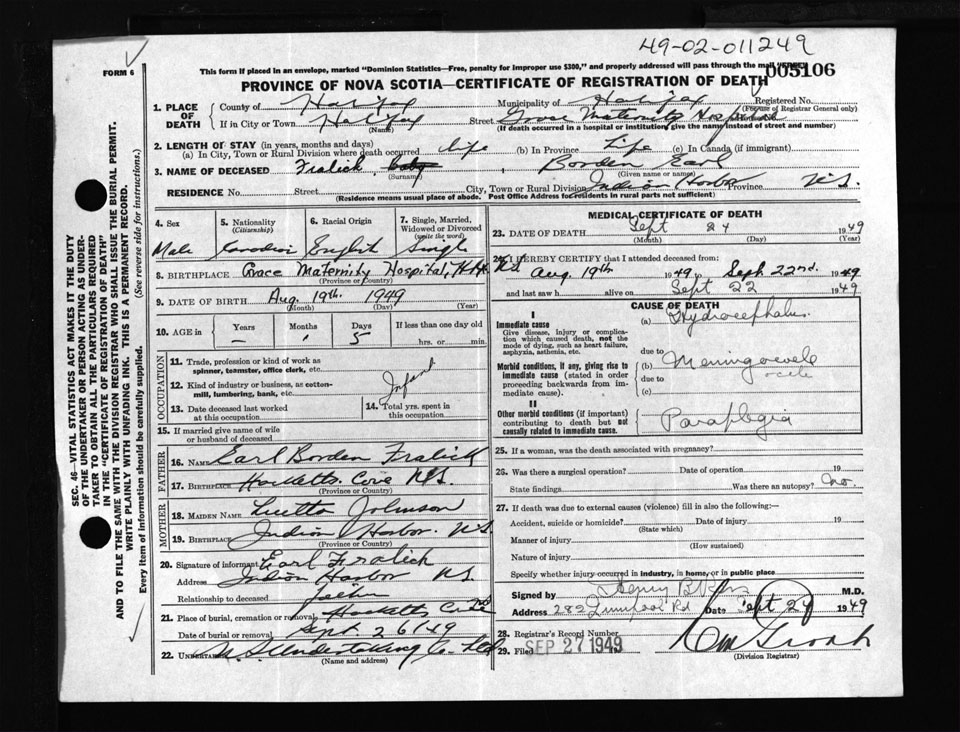 49-02-011249
FORM 6
This form if placed in an envelope, marked "Dominion Statistics—Free, penalty for improper use $300," and properly addressed will pass through the mail "FREE"
005106
PROVINCE OF NOVA SCOTIA—CERTIFICATE OF REGISTRATION OF DEATH
1. PLACE OF DEATH
County of Halifax Municipality of Halifax Registered No.
(For use of Registrar General only)
If in City or Town Halifax Street Grace Maternity Hospital
(Name) (If death occurred in a hospital or institution, give the name instead of street and number)
2. LENGTH OF STAY (in years, months and days)
(a) In City, Town or Rural Division where death occurred Life (b) In Province Life (c) In Canada (if immigrant)
3. NAME OF DECEASED Fralick, baby, Borden Earl
(Surname) (Given name or names)
RESIDENCE No. Street City, Town or Rural Division Indian Harbor Province N.S.
(Residence means usual place of abode. Post Office Address for residents in rural parts not sufficient)
SEC. 46—VITAL STATISTICS ACT MAKES IT THE DUTY
OF THE UNDERTAKER OR PERSON ACTING AS UNDER-
TAKER TO OBTAIN ALL THE PARTICULARS REQUIRED
IN THE "CERTIFICATE OF REGISTRATION OF DEATH"
AND TO FILE THE SAME WITH THE DIVISION REGISTRAR WHO SHALL ISSUE THE BURIAL PERMIT.
WRITE PLAINLY WITH UNFADING INK. THIS IS A PERMANENT RECORD.
Every item of information should be carefully supplied. (See reverse side for instructions.)
4. Sex 5. Nationality (Citizenship) 6. Racial Origin 7. Single, Married, Widowed or Divorced (write the word)
Male Canadian English Single
8. BIRTHPLACE Grace Maternity Hospital, Hfx
(Province or Country)
9. DATE OF BIRTH Aug. 19th. 1949
(Month) (Day) (Year)
10. AGE in Years Months Days If less than one day old
— 1 5 hrs. or min.
OCCUPATION
11. Trade, profession or kind of work as
spinner, teamster, office clerk, etc.
12. Kind of industry or business, as cotton-
mill, lumbering, bank, etc. Infant
13. Date deceased last worked
at this occupation
14. Total yrs. spent in
this occupation
15. If married give name of wife
or husband of deceased
FATHER
16. NAME Earl Borden Fralick
17. BIRTHPLACE Hacketts Cove N.S.
(Province or Country)
MOTHER
18. MAIDEN NAME Luetta Johnson
19. BIRTHPLACE Indian Harbor N.S.
(Province or Country)
20. Signature of informant Earl Fralick
Address Indian Harbor N.S.
Relationship to deceased Father
21. Place of burial, cremation or removal Hacketts Cove
Date of burial or removal Sept. 26/49
22. UNDERTAKER N.S. Undertaking Co. Ltd
(Name and address)
MEDICAL CERTIFICATE OF DEATH
23. DATE OF DEATH Sept 24 1949
(Month) (Day) (Year)
24. I HEREBY CERTIFY that I attended deceased from:
Aug 19th 1949 to Sept. 22nd. 1949
and last saw h alive on Sept 22 1949
CAUSE OF DEATH
I
Immediate cause
Give disease, injury or complica-
tion which caused death, not the
mode of dying, such as heart failure,
asphyxia, asthenia, etc.
(a) Hydrocephalus
due to
Morbid conditions, if any, giving rise to
immediate cause (stated in order
proceeding backwards from im-
mediate cause).
(b) Meningocele
ocele
due to
(c)
II
Other morbid conditions (if important)
contributing to death but not
causally related to immediate cause.
Paraplegia
25. If a woman, was the death associated with pregnancy?
26. Was there a surgical operation? Date of operation 19
State findings Was there an autopsy? no.
27. If death was due to external causes (violence) fill in also the following:—
Accident, suicide or homicide? Date of injury 19
(State which)
Manner of injury
(How sustained)
Nature of injury
Specify whether injury occurred in industry, in home, or in public place
Signed by Henry B M.D.
Address 282 Rd Date Sept 24 1949
28. Registrar's Record Number
29. Filed SEP 27 1949
(Division Registrar)